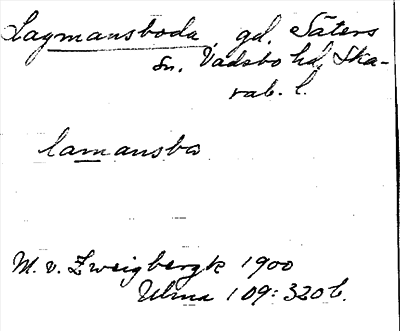 Lagmansboda, gd. Säters
sn. Vadsbo hd, Ska-
rab. l.
lamansbo
M. v. Zweigbergk 1900
Ulma 109:320 b.